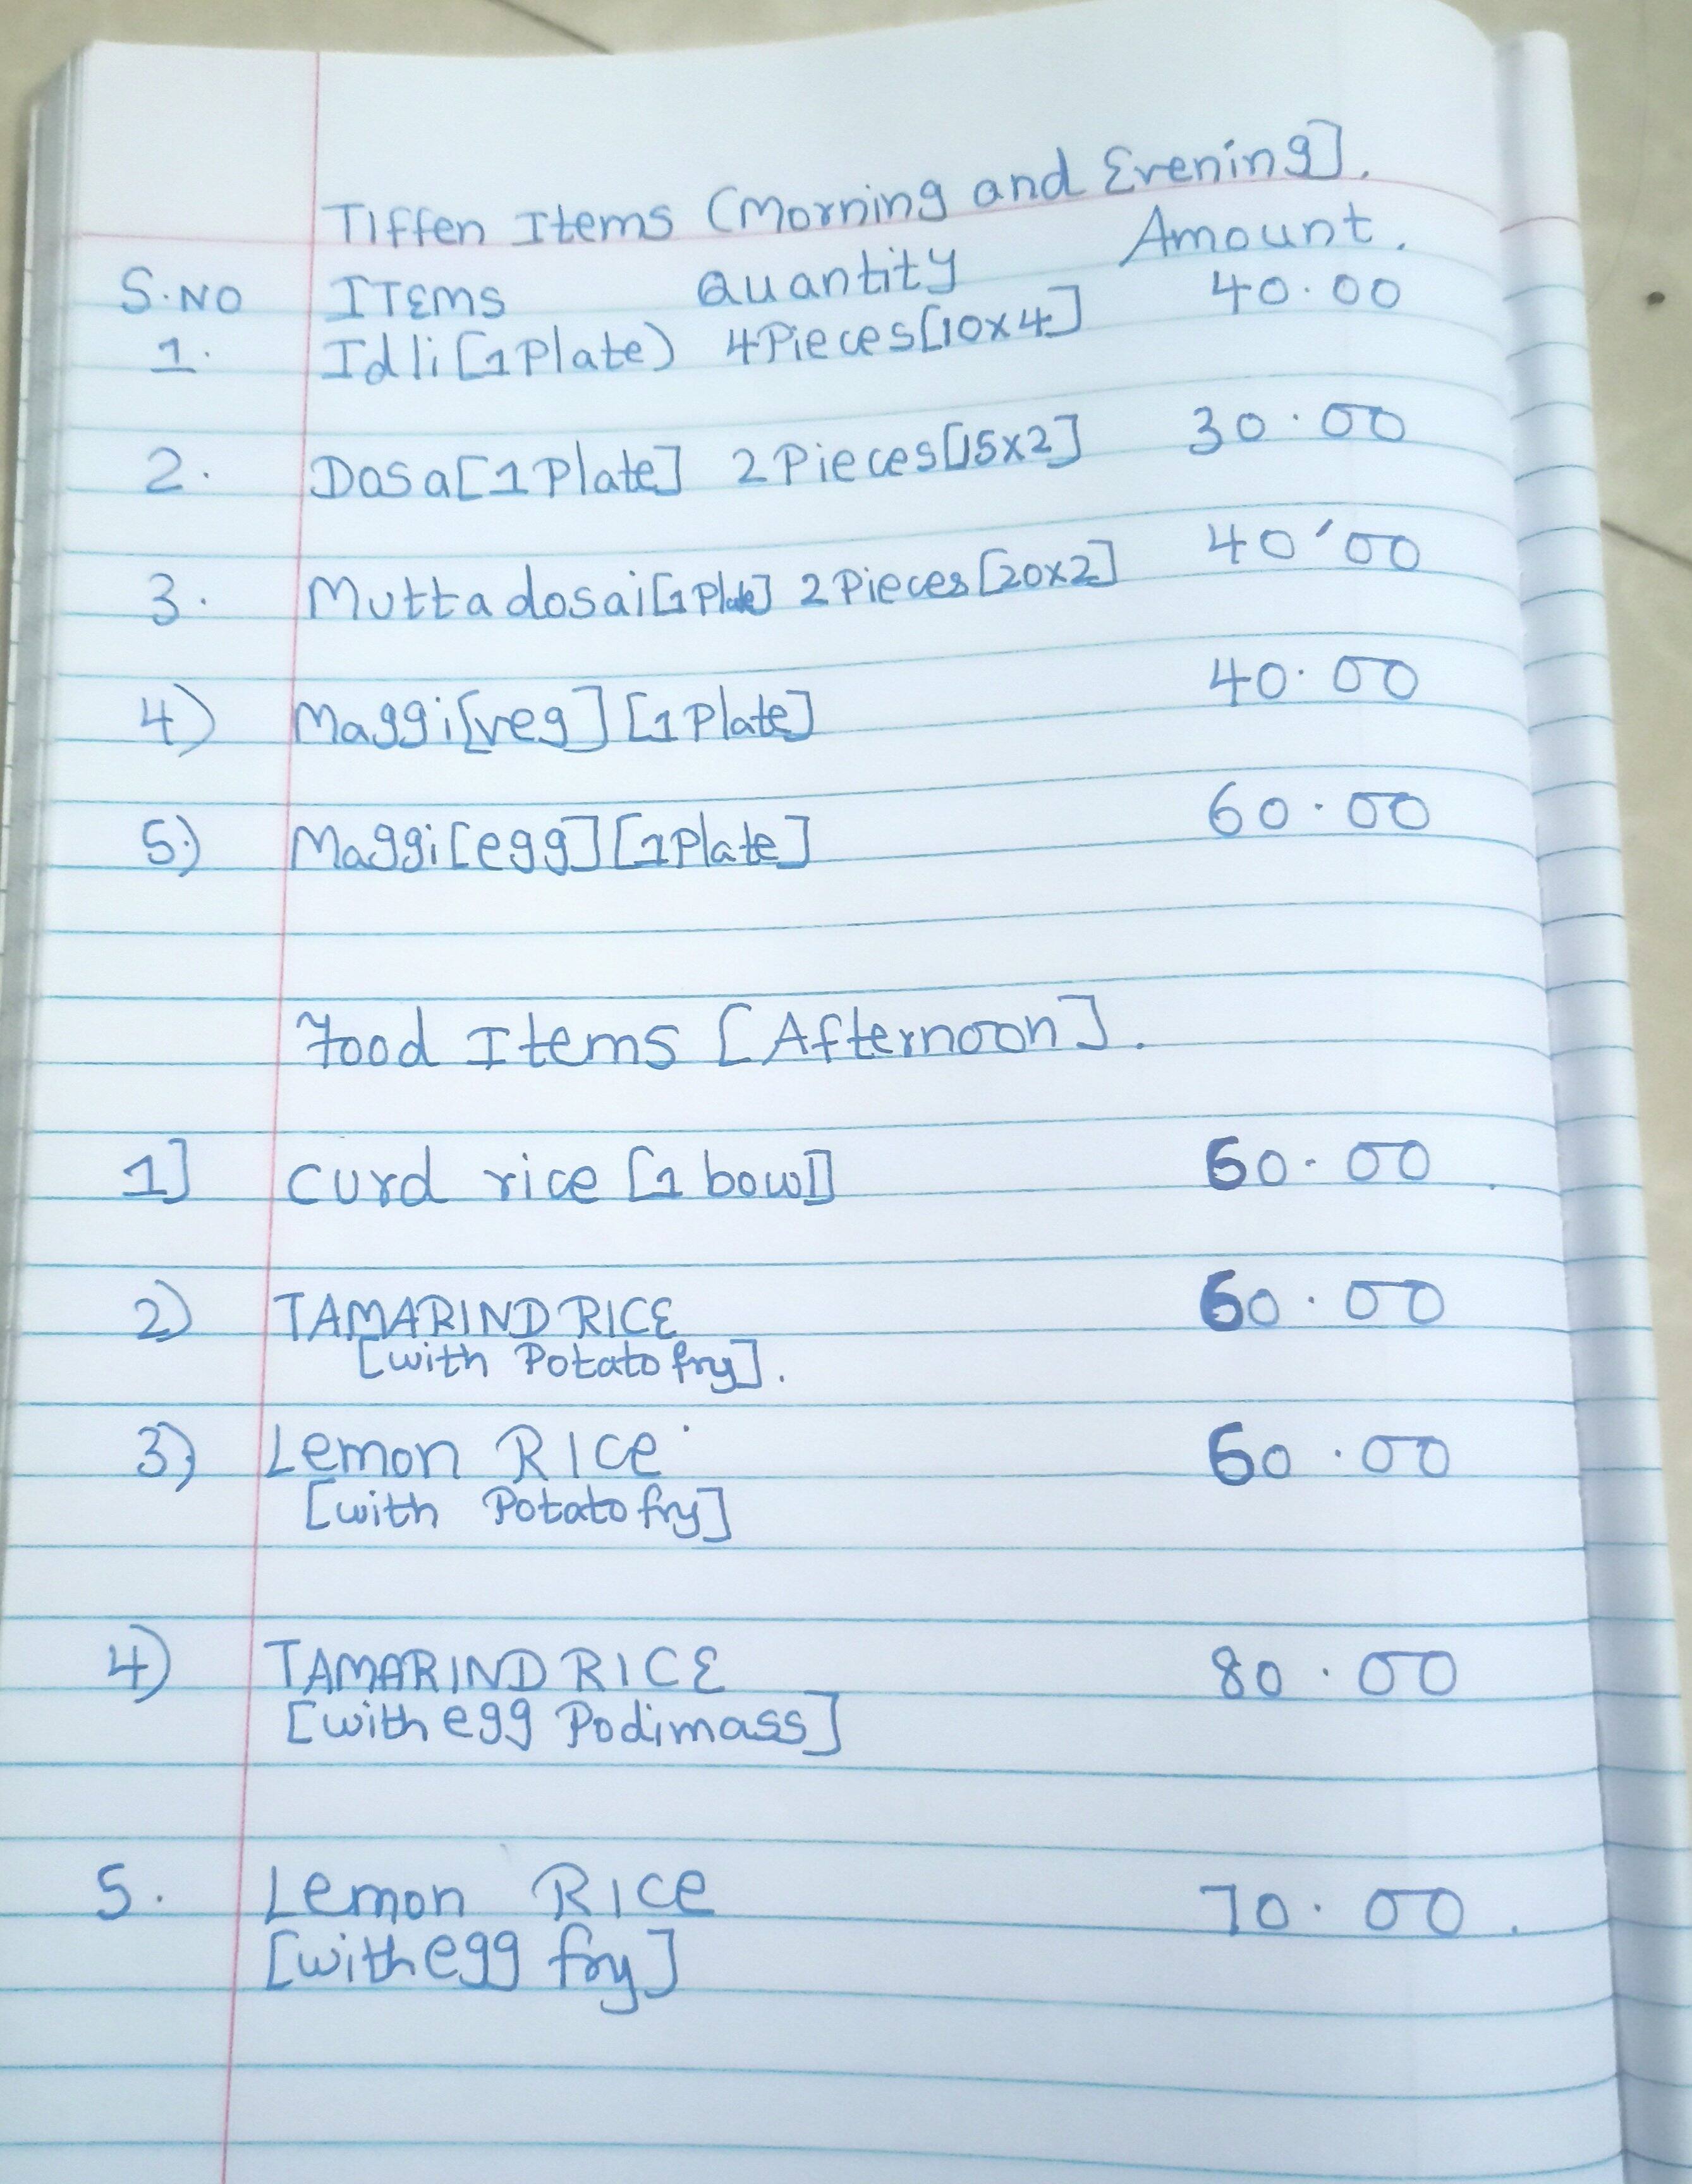 Tiffen Items (Morning and Evening].
S.NO ITEMS Quantity Amount.
1. Idli[1Plate) 4Pieces[10x4] 40.00
2. Dosa[1Plate] 2Pieces[15x2] 30.00
3. Mutta dosai[1Plate] 2Pieces[20x2] 40'00
4) Maggi[veg][1Plate] 40.00
5.) Maggi[egg][1Plate] 60.00
Food Items [Afternoon].
1] curd rice [1 bowl] 60.00
2) TAMARIND RICE 60.00
[with Potato fry].
3) Lemon RICe 60.00
[with Potato fry]
4) TAMARIND RICE 80.00
[with egg Podimass]
5. Lemon RICe 70.00.
[with egg fry]